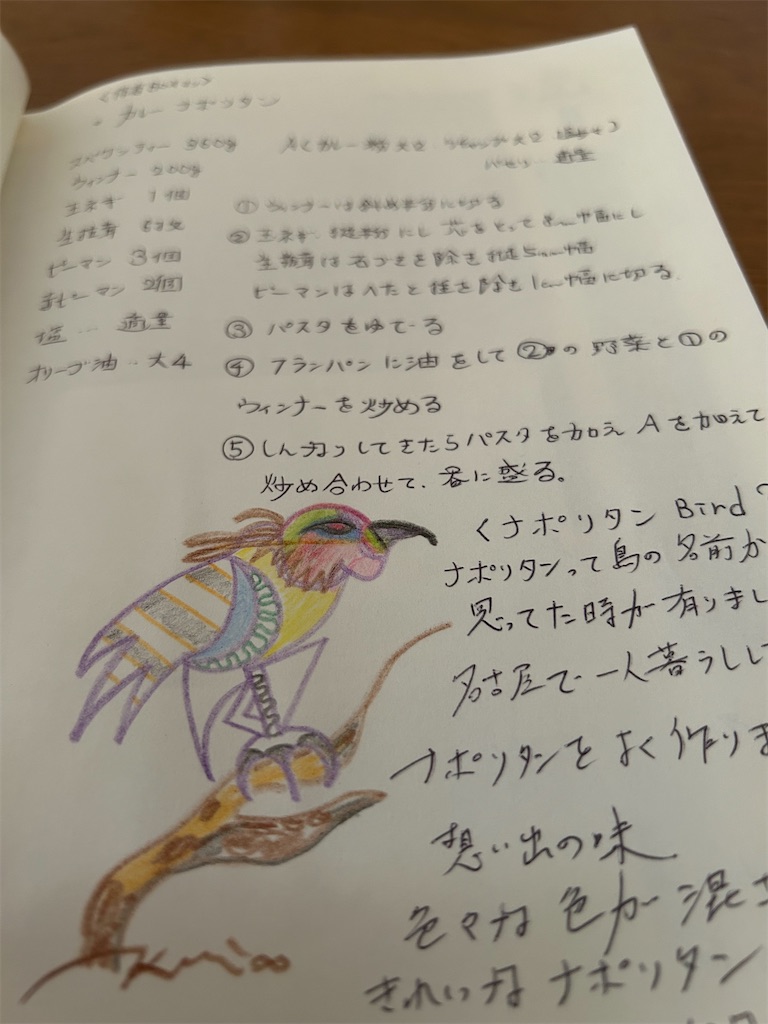 ・カレーナポリタン
スパゲッティー 350g
ウィンナー 200g
玉ネギ 1個
生椎茸
ピーマン 3個
赤ピーマン 2個
塩… 適量
オリーブ油‥大4
A(カレー粉大2 ケチャップ大2
パセリ… 適量
① ウィンナーは斜め半分に切る
② 玉ネギ 縦半分にし 芯をとって 幅にし
生椎茸は石づきを除き 縦5mm幅
ピーマンはヘタと種を除き1cm幅に切る.
③ パスタをゆでる
④ フランパンに油をして②の野菜と①の
ウィンナーを炒める
⑤ しんなりしてきたらパスタを加え Aを加えて
炒め合わせて、器に盛る。
くナポリタン Bird
ナポリタンって鳥の名前か
思ってた時が有りまし
名古屋で一人暮らしし
ナポリタンをよく作りま
想い出の味
色々な色が混ざ
きれいなナポリタン